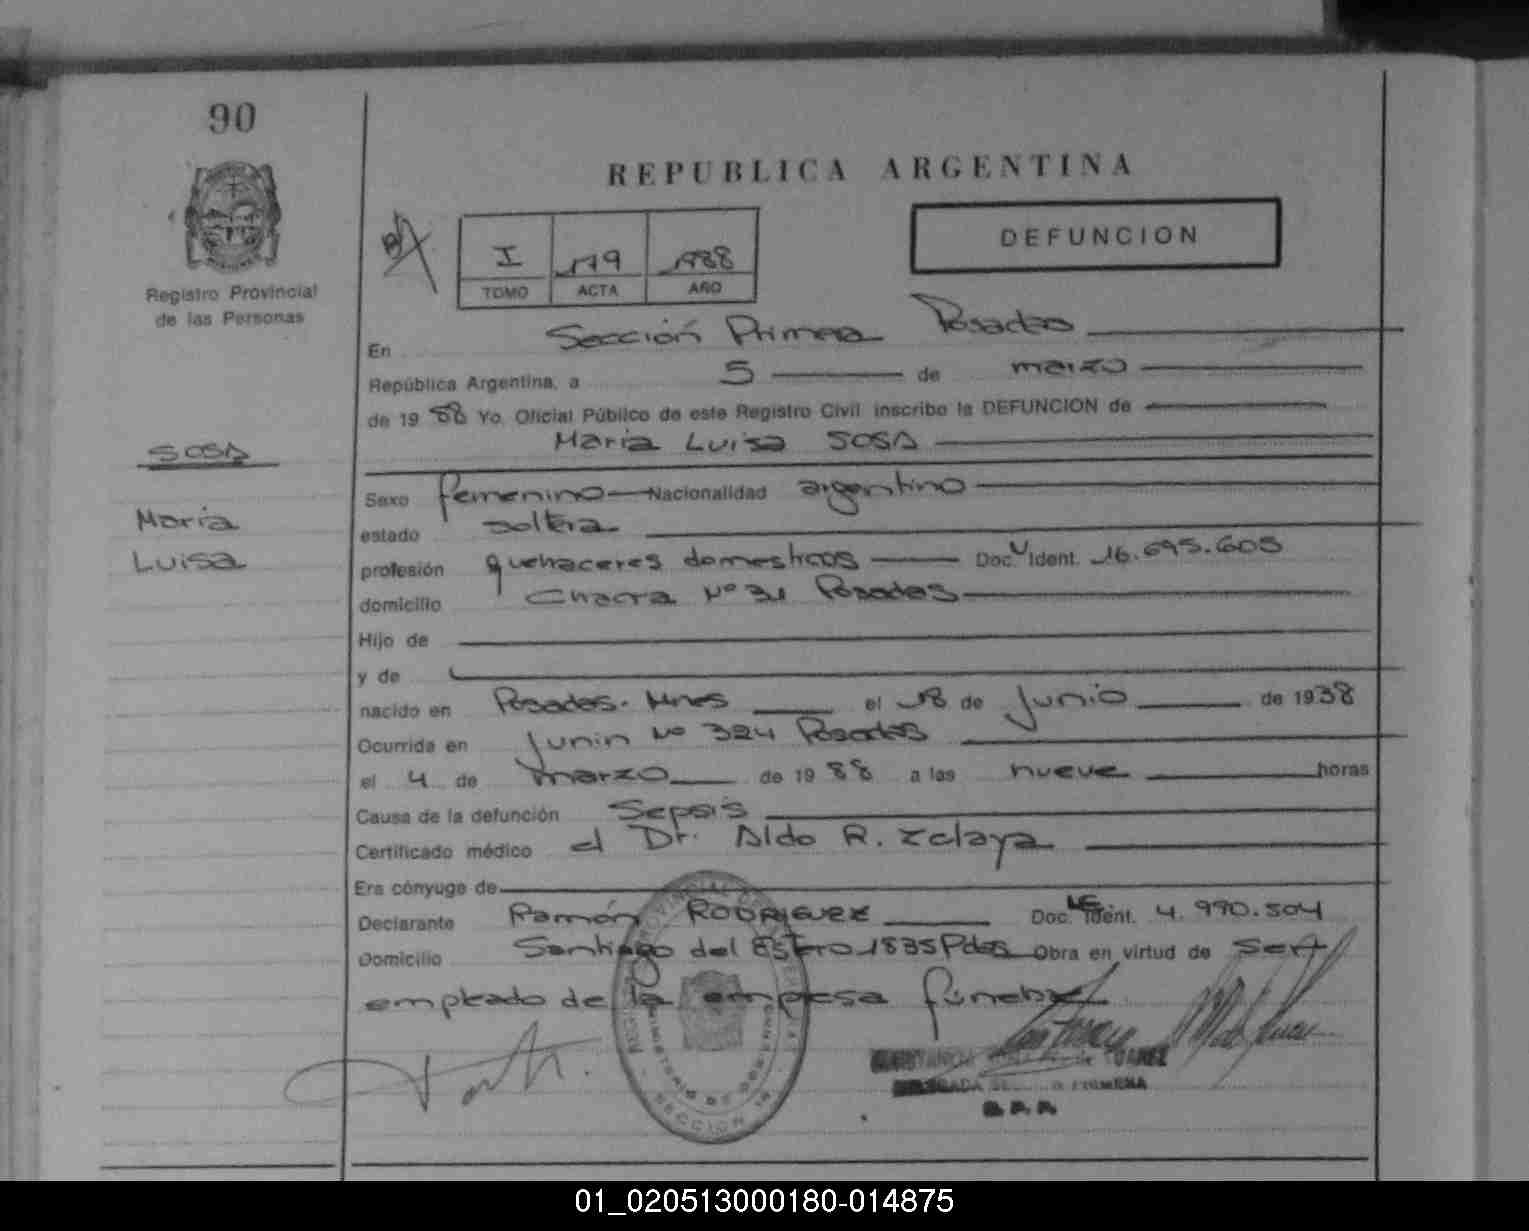 90
REPUBLICA ARGENTINA
DEFUNCION
I 179 1988
TOMO ACTA AÑO
Registro Provincial
de las Personas
En Sección Primera Posadas
República Argentina, a 5 de marzo
de 1988 Yo, Oficial Público de este Registro Civil inscribo la DEFUNCION de
María Luisa SOSA
SOSA
María
Luisa
Sexo femenino Nacionalidad argentino
estado soltera
profesión quehaceres domesticos Doc. U Ident. 16.695.605
domicilio Chacra Nº 31 Posadas
Hijo de
y de
nacido en Posadas. Mnes el 18 de Junio de 1938
Ocurrida en Junin Nº 324 Posadas
el 4 de marzo de 1988 a las nueve horas
Causa de la defunción Sepsis
Certificado médico el Dr. Aldo R. Zelaya
Era cónyuge de
Declarante Ramón RODRIGUEZ Doc. LE Ident. 4.990.504
Domicilio Santiago del Estero 1835 Pdas Obra en virtud de ser
empleado de la empresa fúnebre
MINISTERIO DE GOBIERNO
SECCION 1a
PRIMERA
01_020513000180-014875